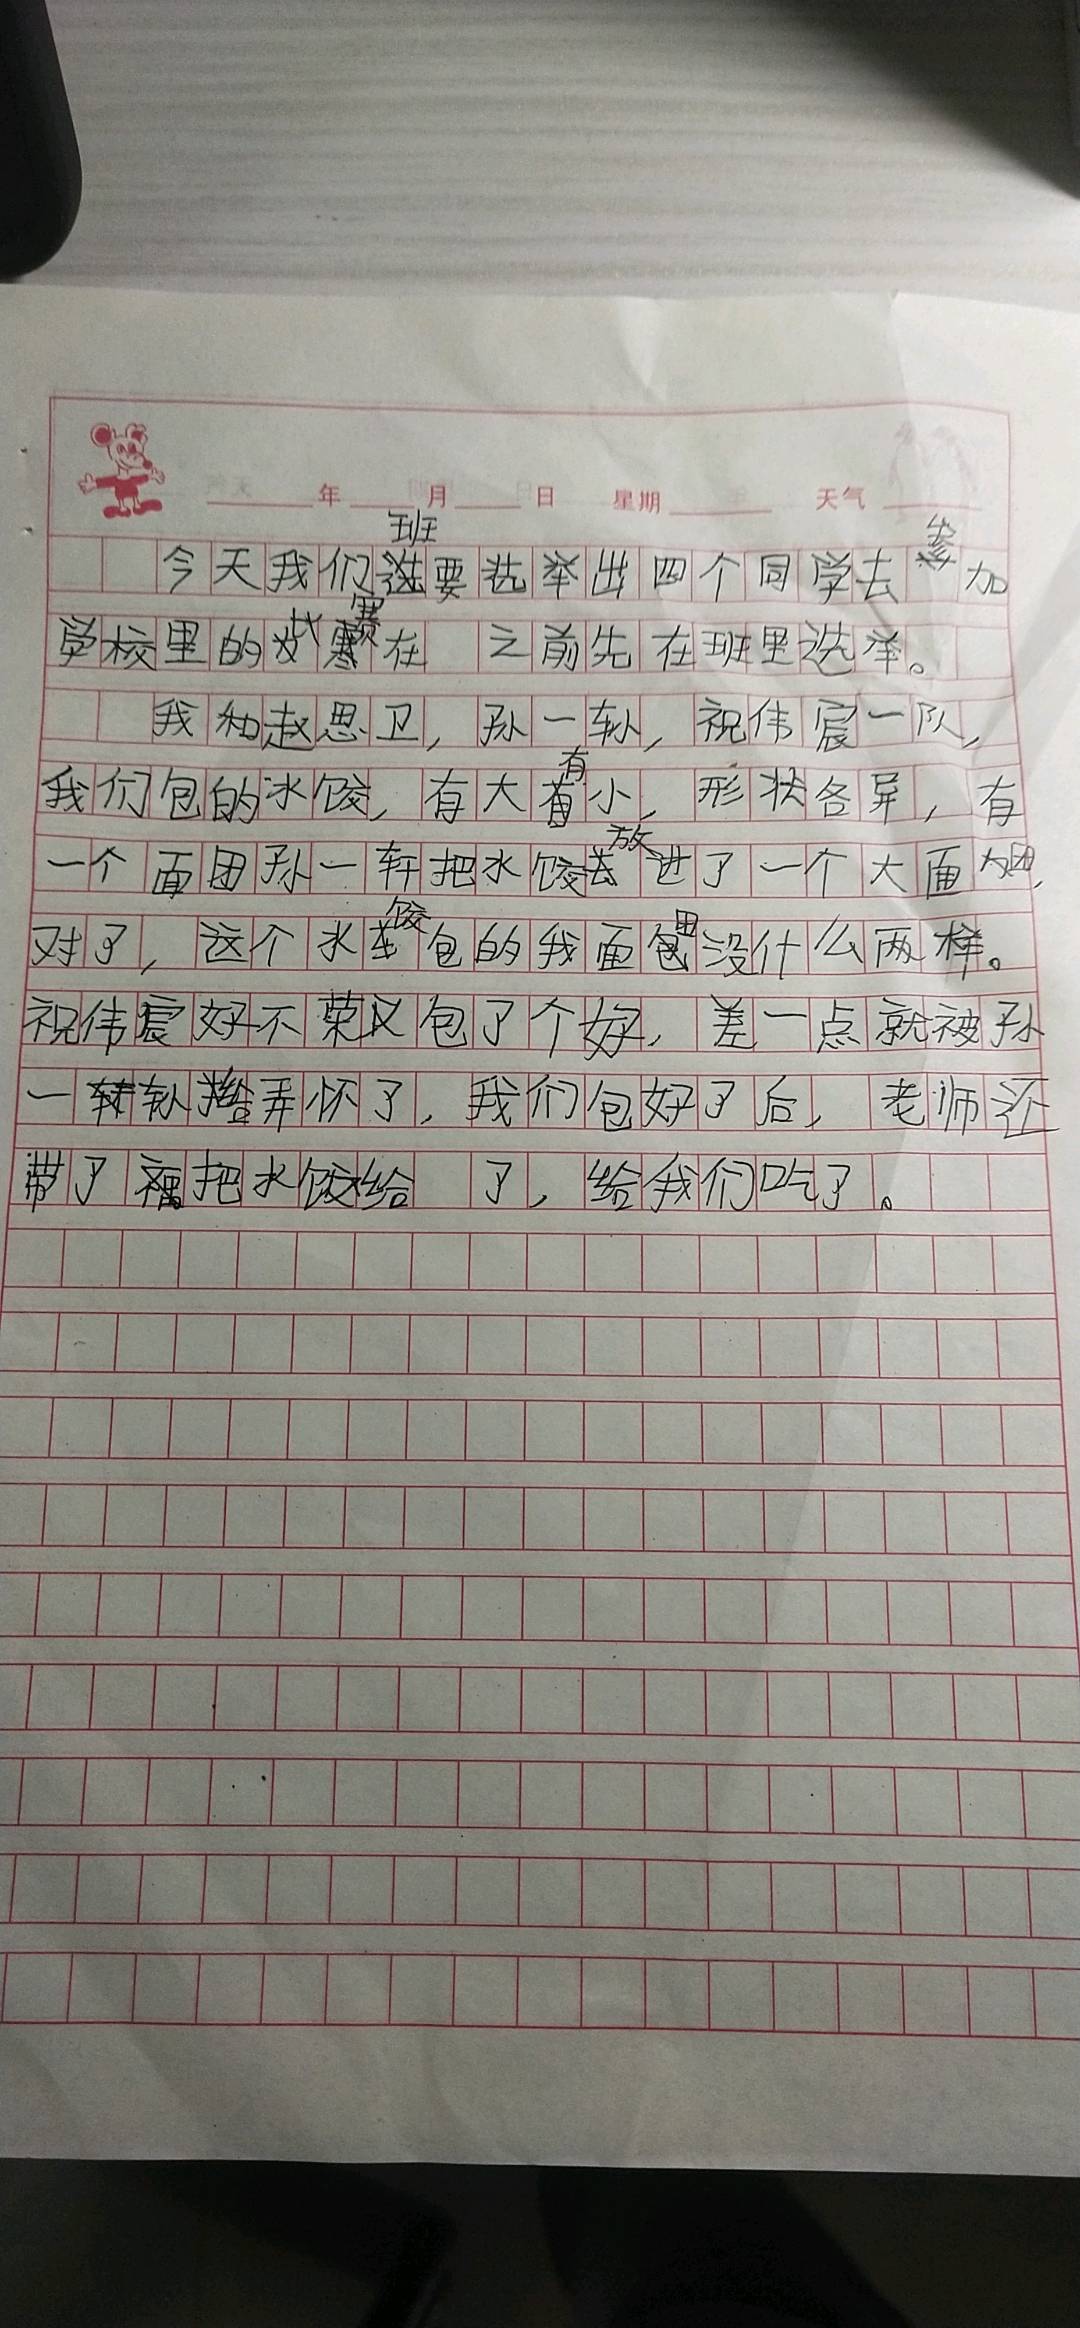 年 月 日 星期 天气
今天我们班要选举出四个同学去参加
学校里的比赛在 之前先在班里选举。
我和赵思卫，孙一轩，祝伟宸一队，
我们包的水饺，有大有小，形状各异，有
一个面团孙一轩把水饺放进了一个大面团，
对了，这个水饺包的我面包里没什么两样。
祝伟宸好不荣义包了个好，差一点就被孙
一轩给弄怀了，我们包好了后，老师还
带了 把水饺给 了，给我们吃了。